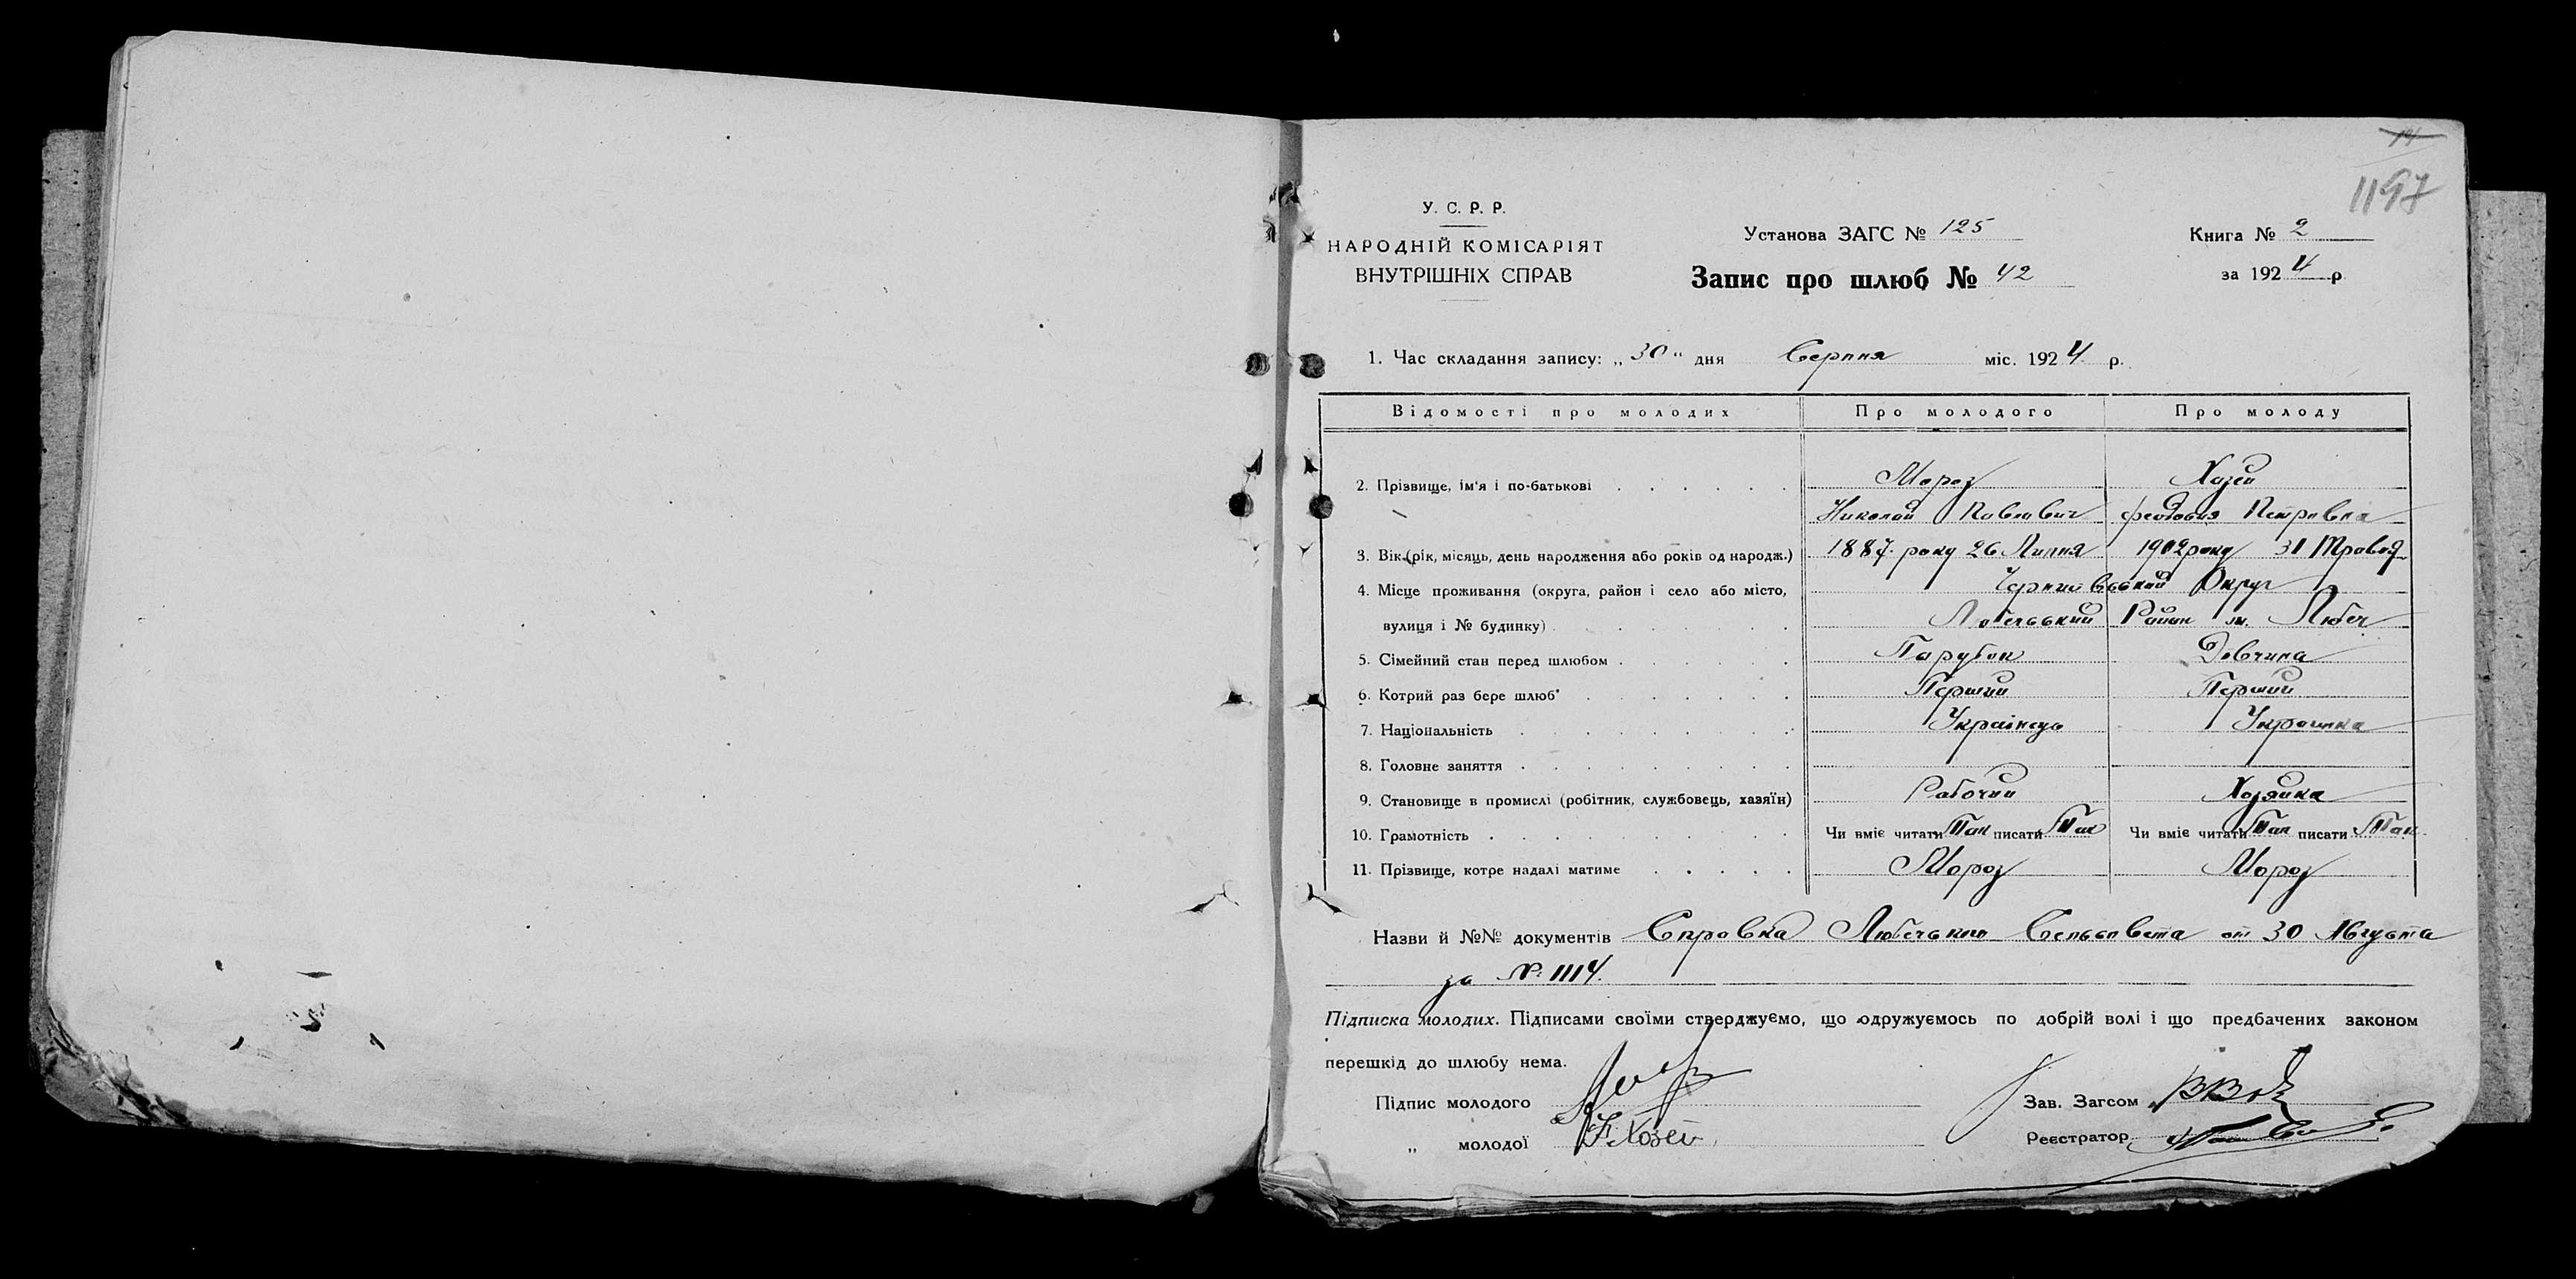 1197
У. С. Р. Р.
НАРОДНІЙ КОМІСАРІЯТ
ВНУТРІШНІХ СПРАВ
Установа ЗАГС № 125
Запис про шлюб № 42
Книга № 2
за 1924 р.
1. Час складання запису: „30“ дня Серпня міс. 1924 р.
Відомості про молодих Про молодого Про молоду
2. Прізвище, ім'я і по-батькові Мороз Хазей
Николай Павлович Феодосия Петровна
3. Вік (рік, місяць, день народження або років од народж.) 1887 року 26 Липня 1902 року 31 Травня
4. Місце проживання (округа, район і село або місто, Чернигівський Округ
вулиця і № будинку) Любечський Район м. Любеч
5. Сімейний стан перед шлюбом Парубок Дівчина
6. Котрий раз бере шлюб Перший Перший
7. Національність Українець Українка
8. Головне заняття
9. Становище в промислі (робітник, службовець, хазяїн) Рабочий Хозяйка
10. Грамотність Чи вміє читати Так писати Так Чи вміє читати Так писати Так
11. Прізвище, котре надалі матиме Мороз Мороз
Назви й №№ документів Справка Любечського Сельсовета от 30 Августа
за № 1114.
Підписка молодих. Підписами своїми стверджуємо, що одружуємось по добрій волі і що предбачених законом
перешкід до шлюбу нема.
Підпис молодого
„ молодої Ф. Хозей
Зав. Загсом
Реєстратор